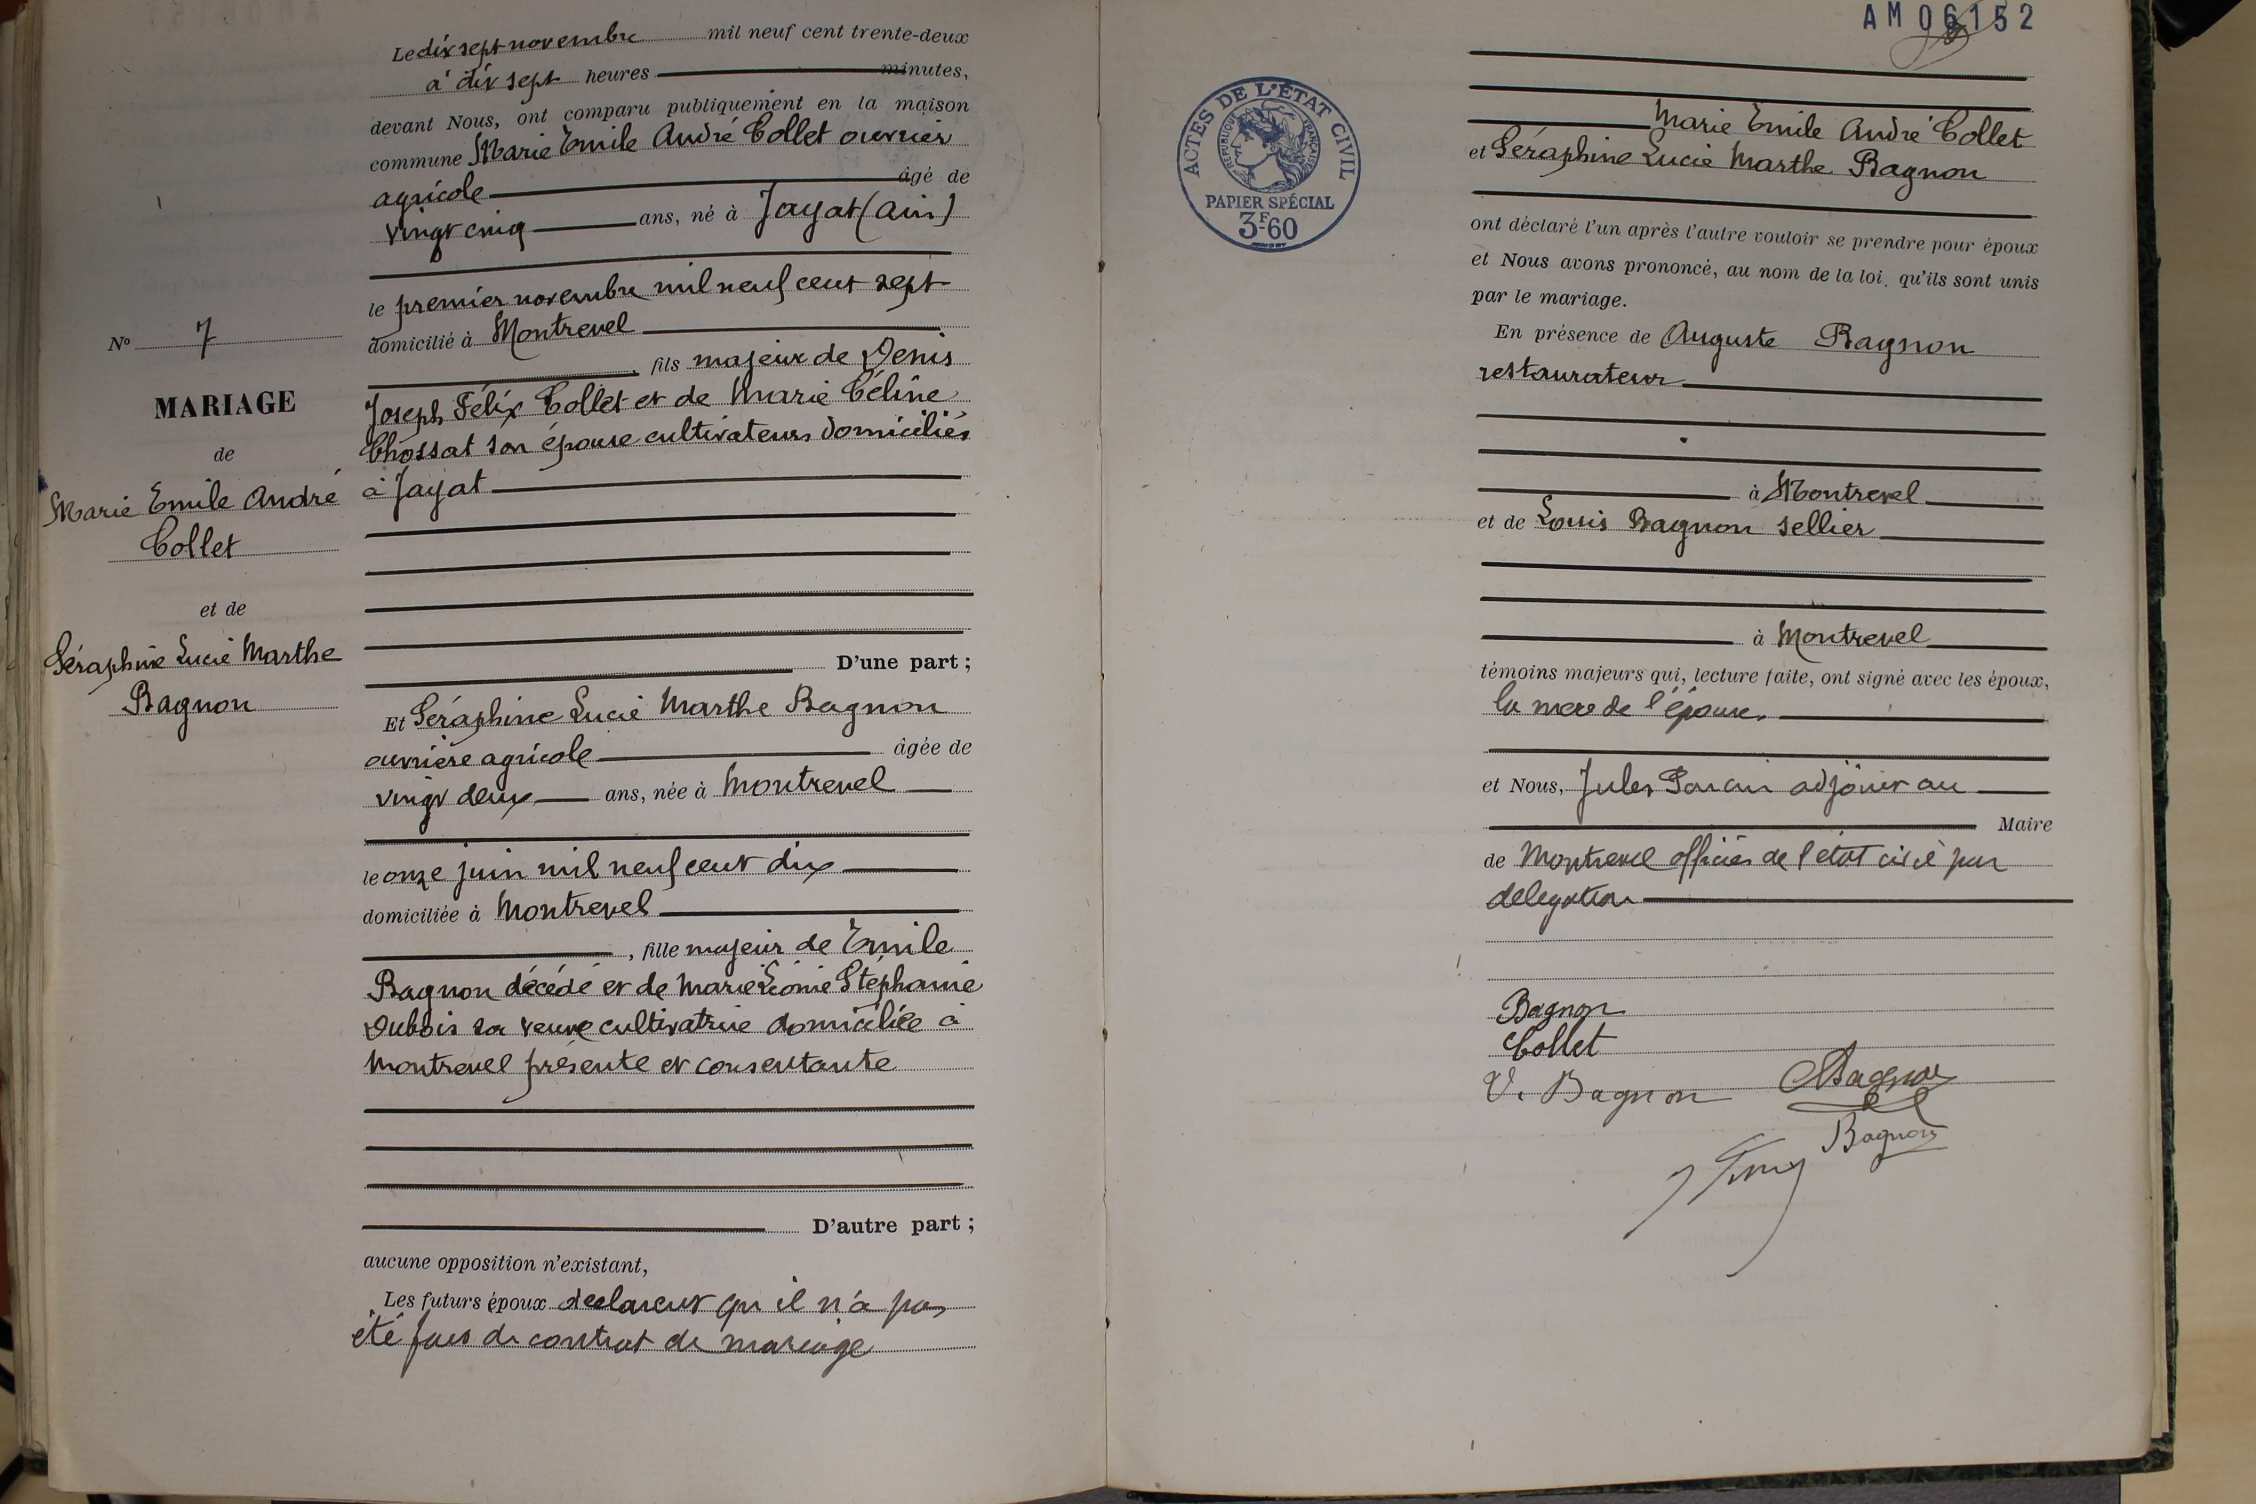 Le dix sept novembre mil neuf cent trente-deux
à dix sept heures minutes,
devant Nous, ont comparu publiquement en la maison
commune Marie Emile André Collet ouvrier
agricole âgé de
vingt cinq ans, né à Jayat (Ain)
le premier novembre mil neuf cent sept
domicilié à Montrevel
, fils majeur de Denis
Joseph Félix Collet et de Marie Céline
Chossat son épouse cultivateurs domiciliés
à Jayat
D'une part ;
Et Séraphine Lucie Marthe Bagnon
ouvrière agricole âgée de
vingt deux ans, née à Montrevel
le onze juin mil neuf cent dix
domiciliée à Montrevel
, fille majeur de Emile
Bagnon décédé et de Marie Léonie Stéphanie
Dubois sa veuve cultivatrice domiciliée à
Montrevel présente et consentante
D'autre part ;
aucune opposition n'existant,
Les futurs époux declarent qu il n'a pas
été fait de contrat de mariage
N° 7
MARIAGE
de
Marie Emile André
Collet
et de
Séraphine Lucie Marthe
Bagnon
AM06152
ACTES DE L'ETAT CIVIL
REPUBLIQUE FRANÇAISE
PAPIER SPÉCIAL
3F60
Marie Emile André Collet
et Séraphine Lucie Marthe Bagnon
ont déclaré l'un après l'autre vouloir se prendre pour époux
et Nous avons prononcé, au nom de la loi, qu'ils sont unis
par le mariage.
En présence de Auguste Bagnon
restaurateur
à Montrevel
et de Louis Bagnon sellier
à Montrevel
témoins majeurs qui, lecture faite, ont signé avec les époux,
la mere de l'épouse.
et Nous, Jules adjoint au
Maire
de Montrevel officier de l'état civil par
delegation
Bagnon
Collet
V. Bagnon
Bagnon
Bagnon